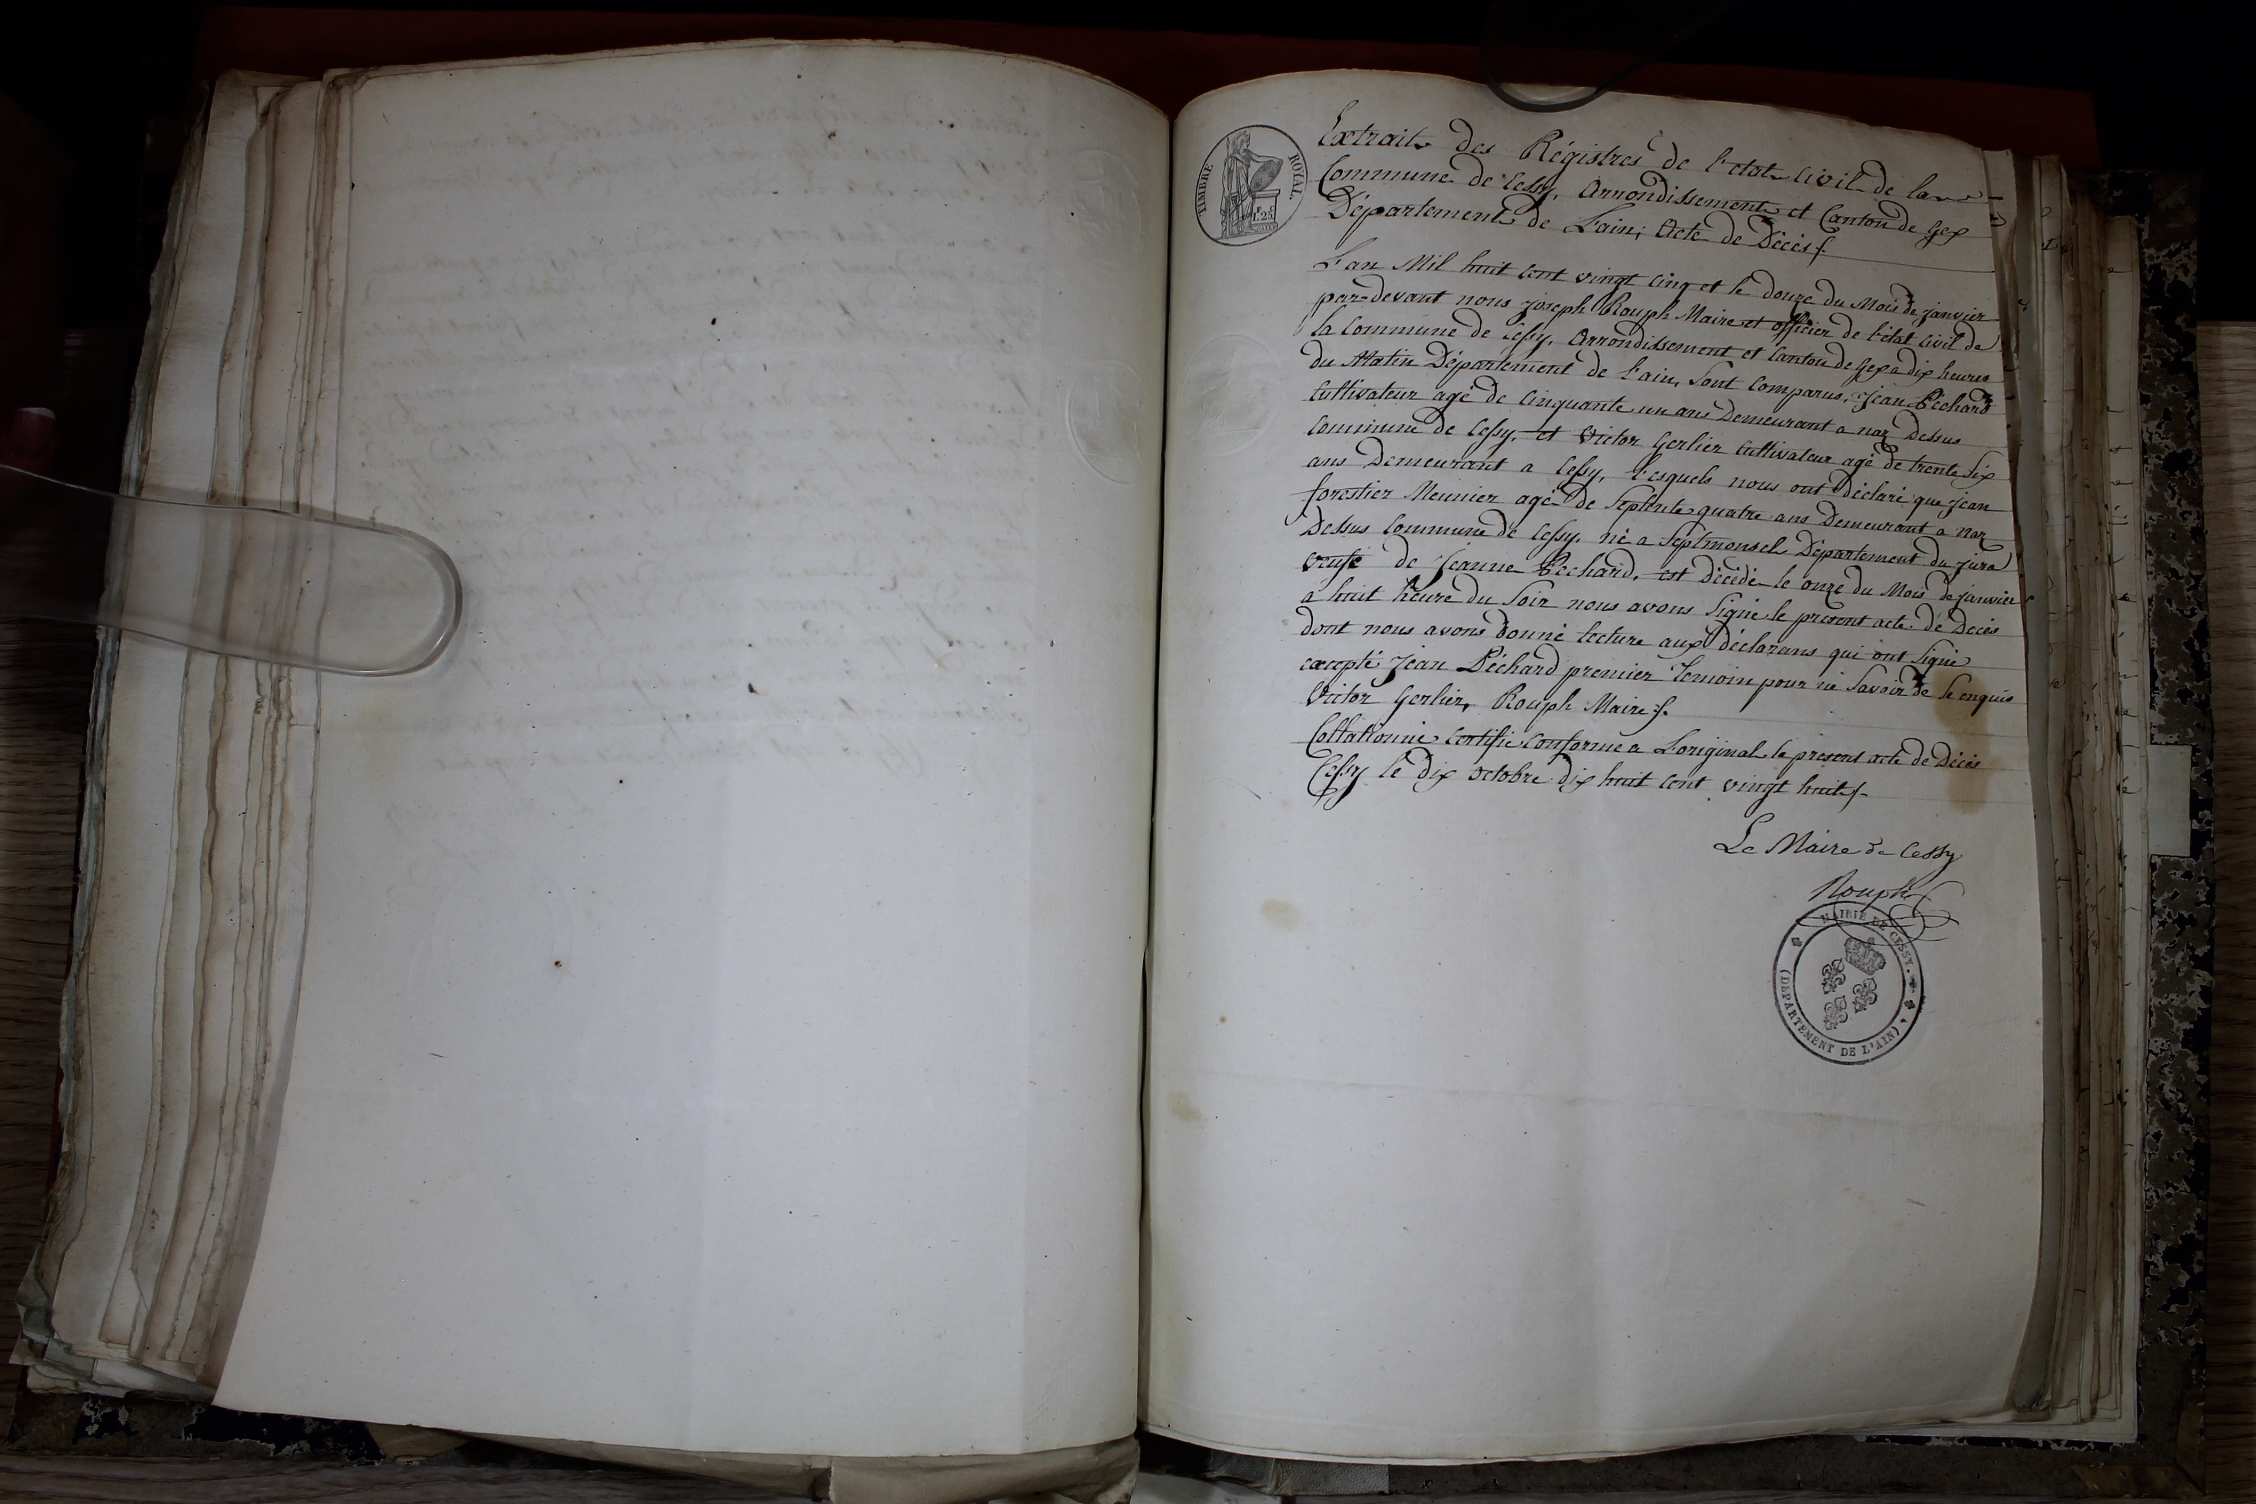 TIMBRE ROYAL
1.25
Extrait des Régistres de l'etat Civil de la
Commune de Cessy, Arrondissement et Canton de Gex
Département de L'ain; Acte de Décès f.
L'an Mil huit cent vingt cinq et le douze du Mois de janvier
par-devant nous joseph Rouph Maire et officier de l'état Civil de
la Commune de Cessy, Arrondissement et Canton de Gex a dix heures
du Matin Département de l'ain, Sont Comparus, Jean Péchard
Cultivateur agé de Cinquante un ans Demeurant a naz Dessus
Commune de Cessy, et Victor Gerlier Cultivateur agé de trente Six
ans Demeurant a Cessy, lesquels nous ont Déclaré que jean
forestier Meunier agé de Septente quatre ans Demeurant a Naz
Dessus Commune de Cessy, né a Septmoncel Département du jura
veufe de Jeanne Péchard, est Décédé le onze du Mois de janvier
a huit heure du Soir nous avons Signé le présent acte de Decès
dont nous avons Donné lecture aux Déclarans qui ont Signé
excepté Jean Péchard premier Temoin pour ne Savoir de Se enquis
Victor Gerlier, Rouph Maire f.
Collationné Certifie Conforme a L'original le present acte de Décès
Cessy le Dix octobre Dix huit Cent vingt huit f.
Le Maire de Cessy
Rouph
MAIRIE DE CESSY.
(DÉPARTEMENT DE L'AIN)